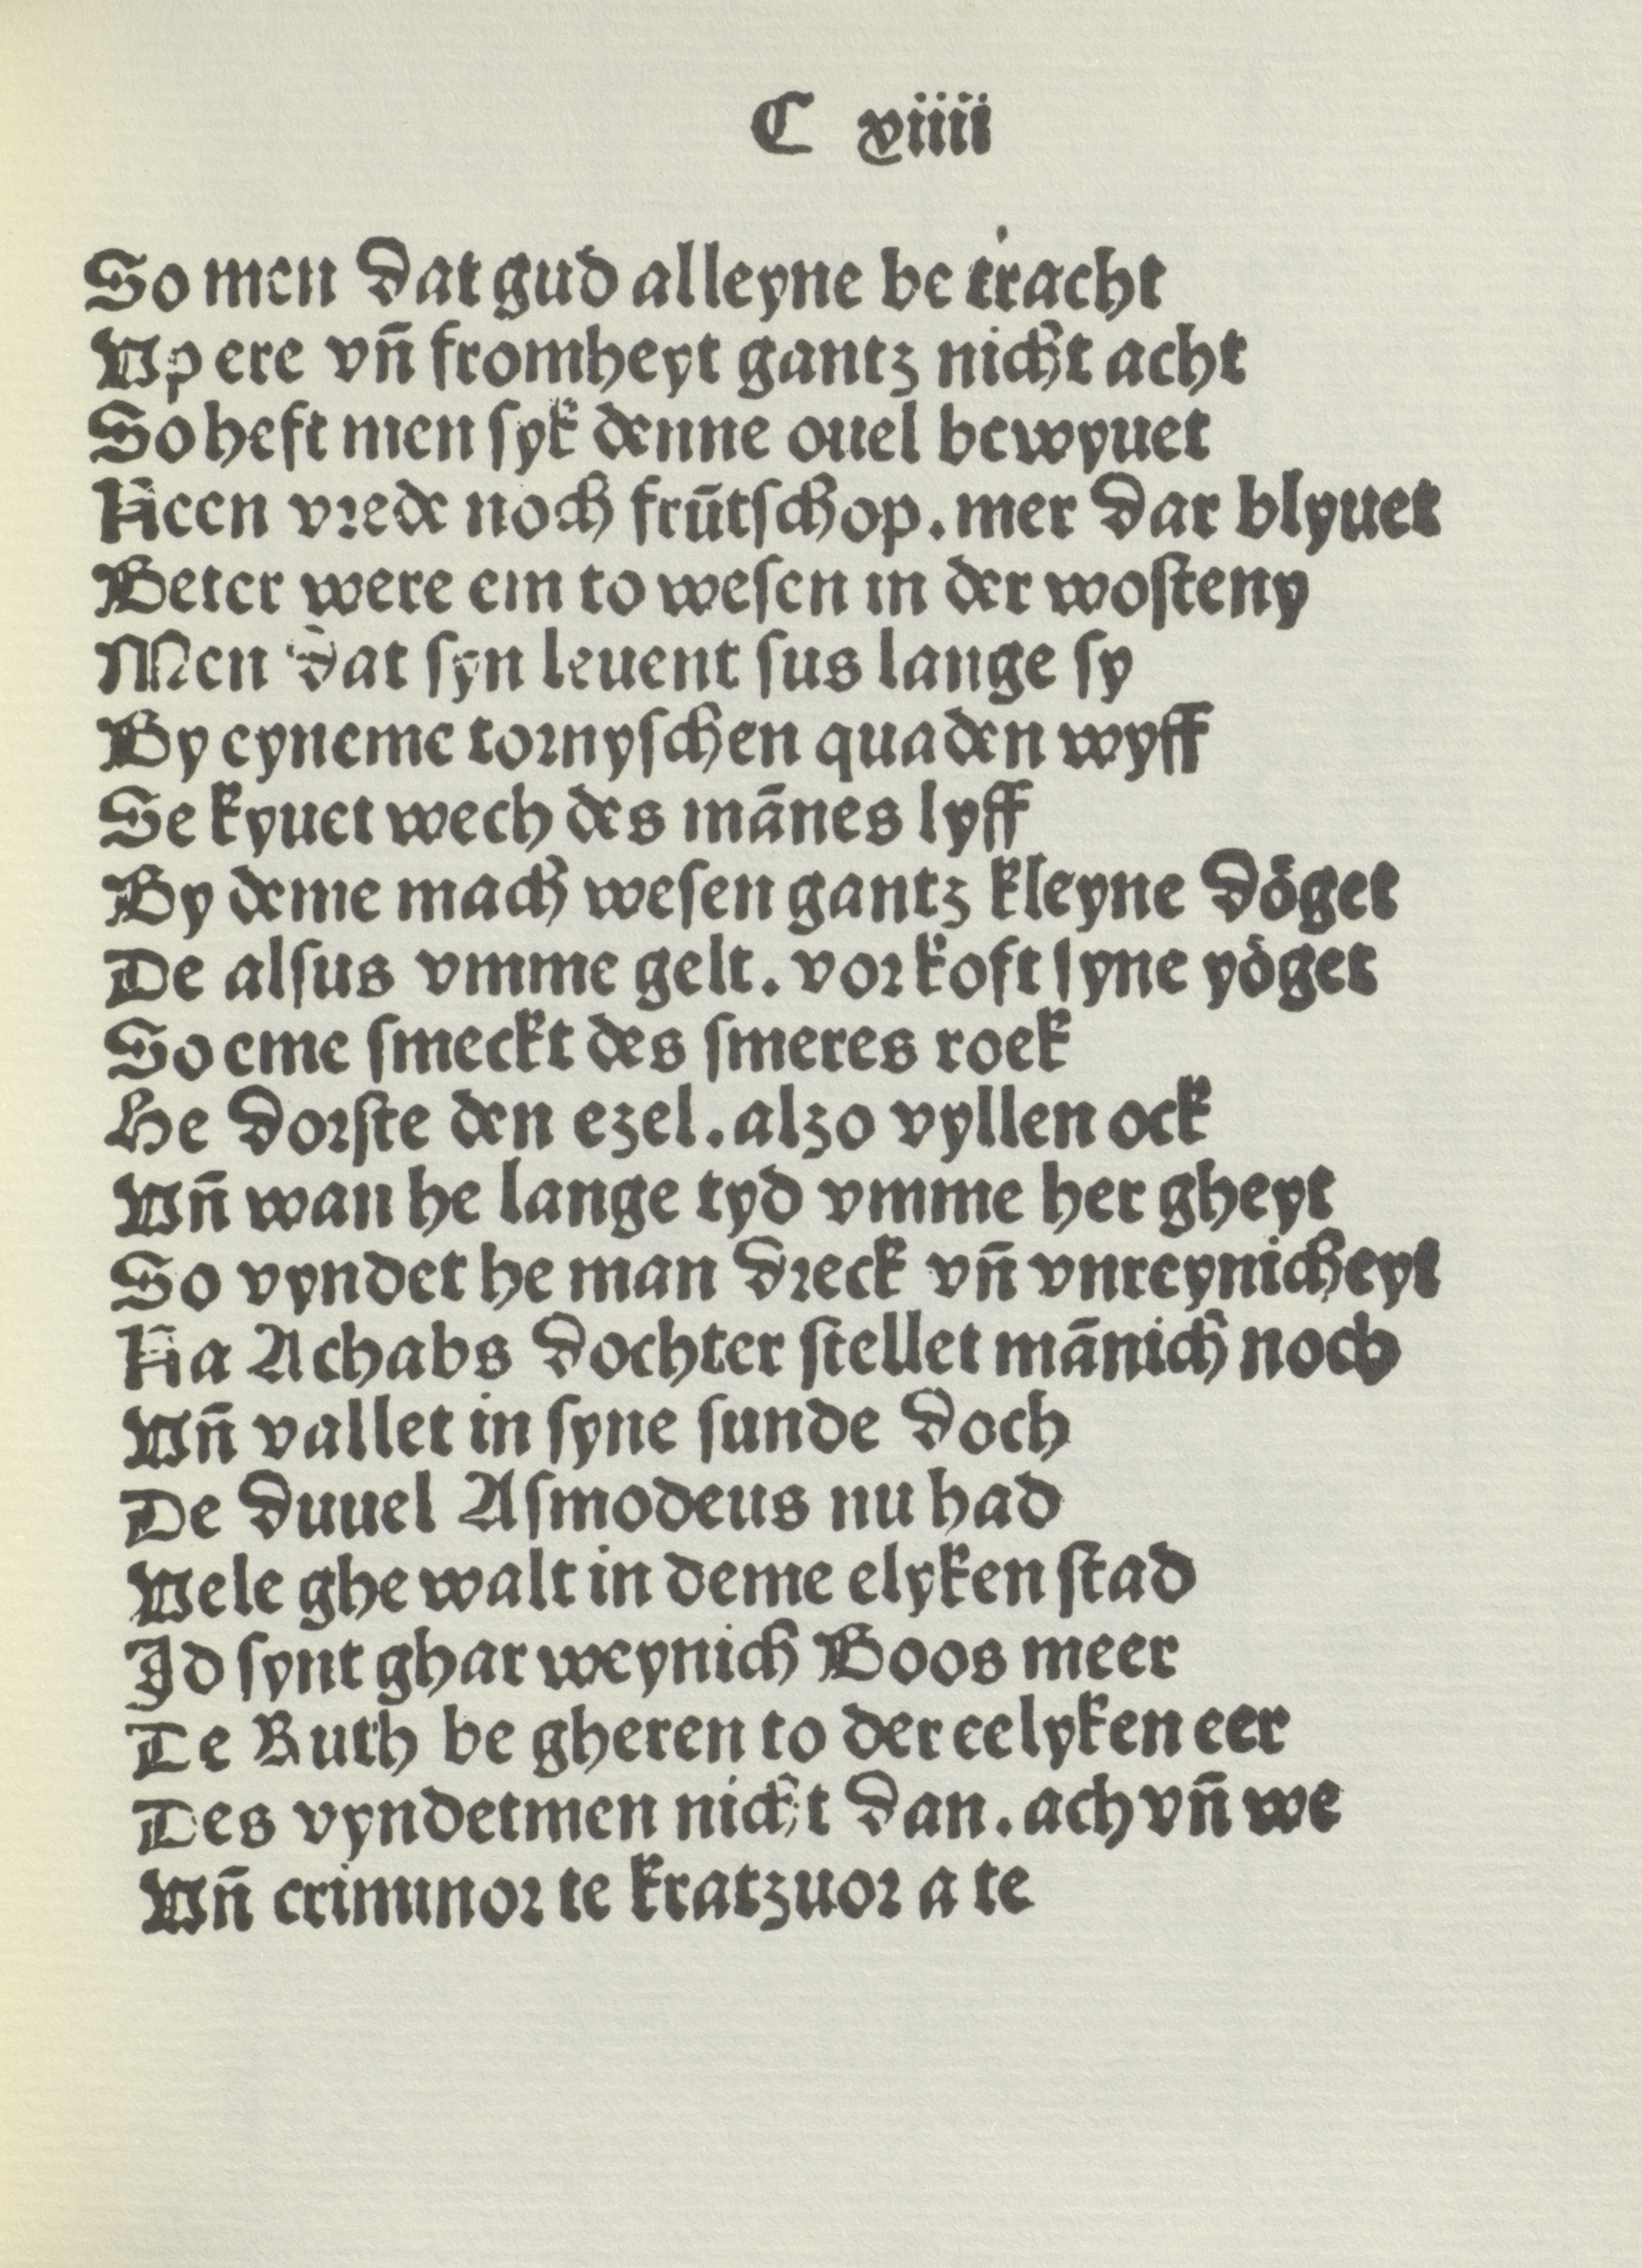 C xiiii
So men dat gud alleyne be tracht
Vp ere vn̄ fromheyt gantz nicht acht
So heft men ſyk denne ouel bewyuet
Neen vꝛede noch frūtſchop. mer dar blyuet
Beter were em to weſen in der woſteny
Men dat ſyn leuent ſus lange ſy
By eyneme toꝛnyſchen quaden wyff
Se kyuet wech des mānes lyff
By deme mach weſen gantz kleyne doͤget
De alſus vmme gelt. voꝛkoft ſyne yoͤget
So eme ſmeckt des ſmeres roek
He doꝛſte den ezel. alzo vyllen ock
Vn̄ wan he lange tyd vmme her gheyt
So vyndet he man dꝛeck vn̄ vnreynicheyt
Na Achabs dochter ſtellet mānich noch
Vn̄ vallet in ſyne ſunde doch
De duuel Aſmodeus nu had
Vele ghe walt in deme elyken ſtad
Id ſynt ghar weynich Boos meer
De Ruth be gheren to der eelyken eer
Des vyndetmen nicht dan. ach vn̄ we
Vn̄ criminoꝛ te kratzuoꝛ a te